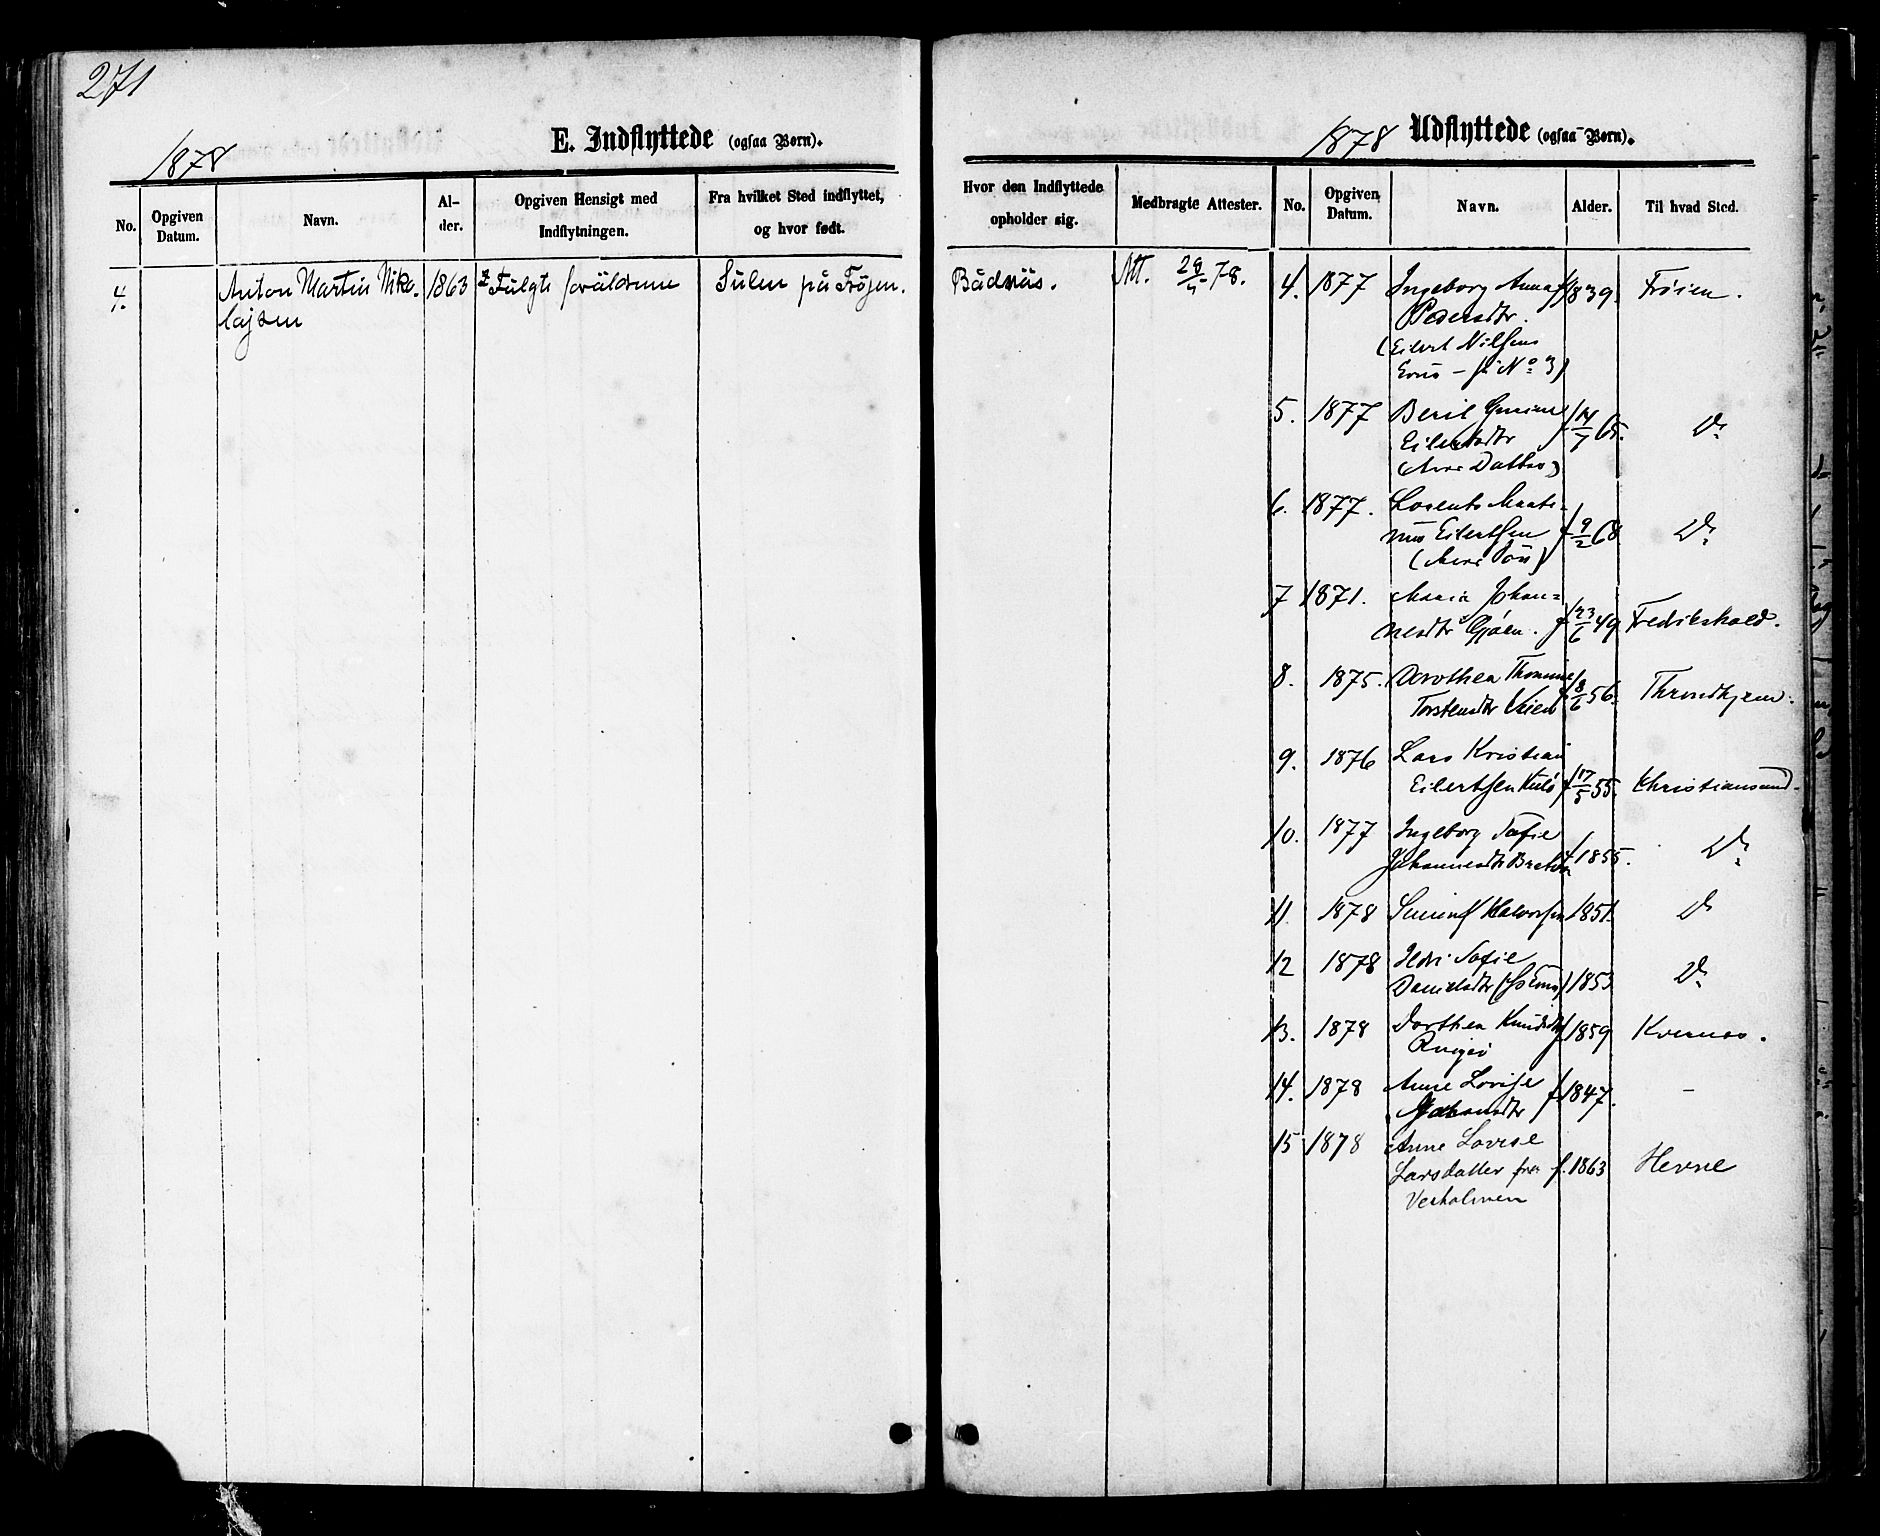 271
1878
E. Indflyttede (ogsaa Børn).
No.
Opgiven Datum.
Navn.
Al-
der.
Opgiven Hensigt med
Indflytningen.
Fra hvilket Sted indflyttet,
og hvor født.
4.
Anton Martin Niko-
lajsen
1863
Fulgte forældrene
Sulen på Frøjen.
1878
Udflyttede (ogsaa Børn).
Hvor den Indflyttede
opholder sig.
Medbragte Attester.
No.
Opgiven
Datum.
Navn.
Alder.
Til hvad Sted.
Bådnäs.
Att. 78.
4. 1877 Ingeborg Anna f 1839. Frøien.
Pedersdtr.
(Eilert Nilsens
No 3)
5. 1877 Berit f 65. Do
Eilertsdtr
Datter)
6. 1877. Lorents
Eilertsen f 9/2 68 Do
Søn)
7 1871. Maria Johan-
nesdtr f 23/6 49 Fredrikshald.
8. 1875. Dorothea
Torstensdtr 8/6 56. Throndhjem.
9. 1876 Lars Kristian
Eilertsen f 17/5 55. Christiansund.
10. 1877 Ingeborg Sofie
Johannesdtr f 1855. Do
11. 1878 Halvorsen 1851. Do
12 1878 Sofie
Danielsdtr 1853 Do
13. 1878 Dorthea Knudsdtr f 1859 Kvernes.
14. 1878 Anne Lovise f 1847. –
15 1878 Anne Lovise
Larsdatter fra f. 1863 Hevne
Vesholmen